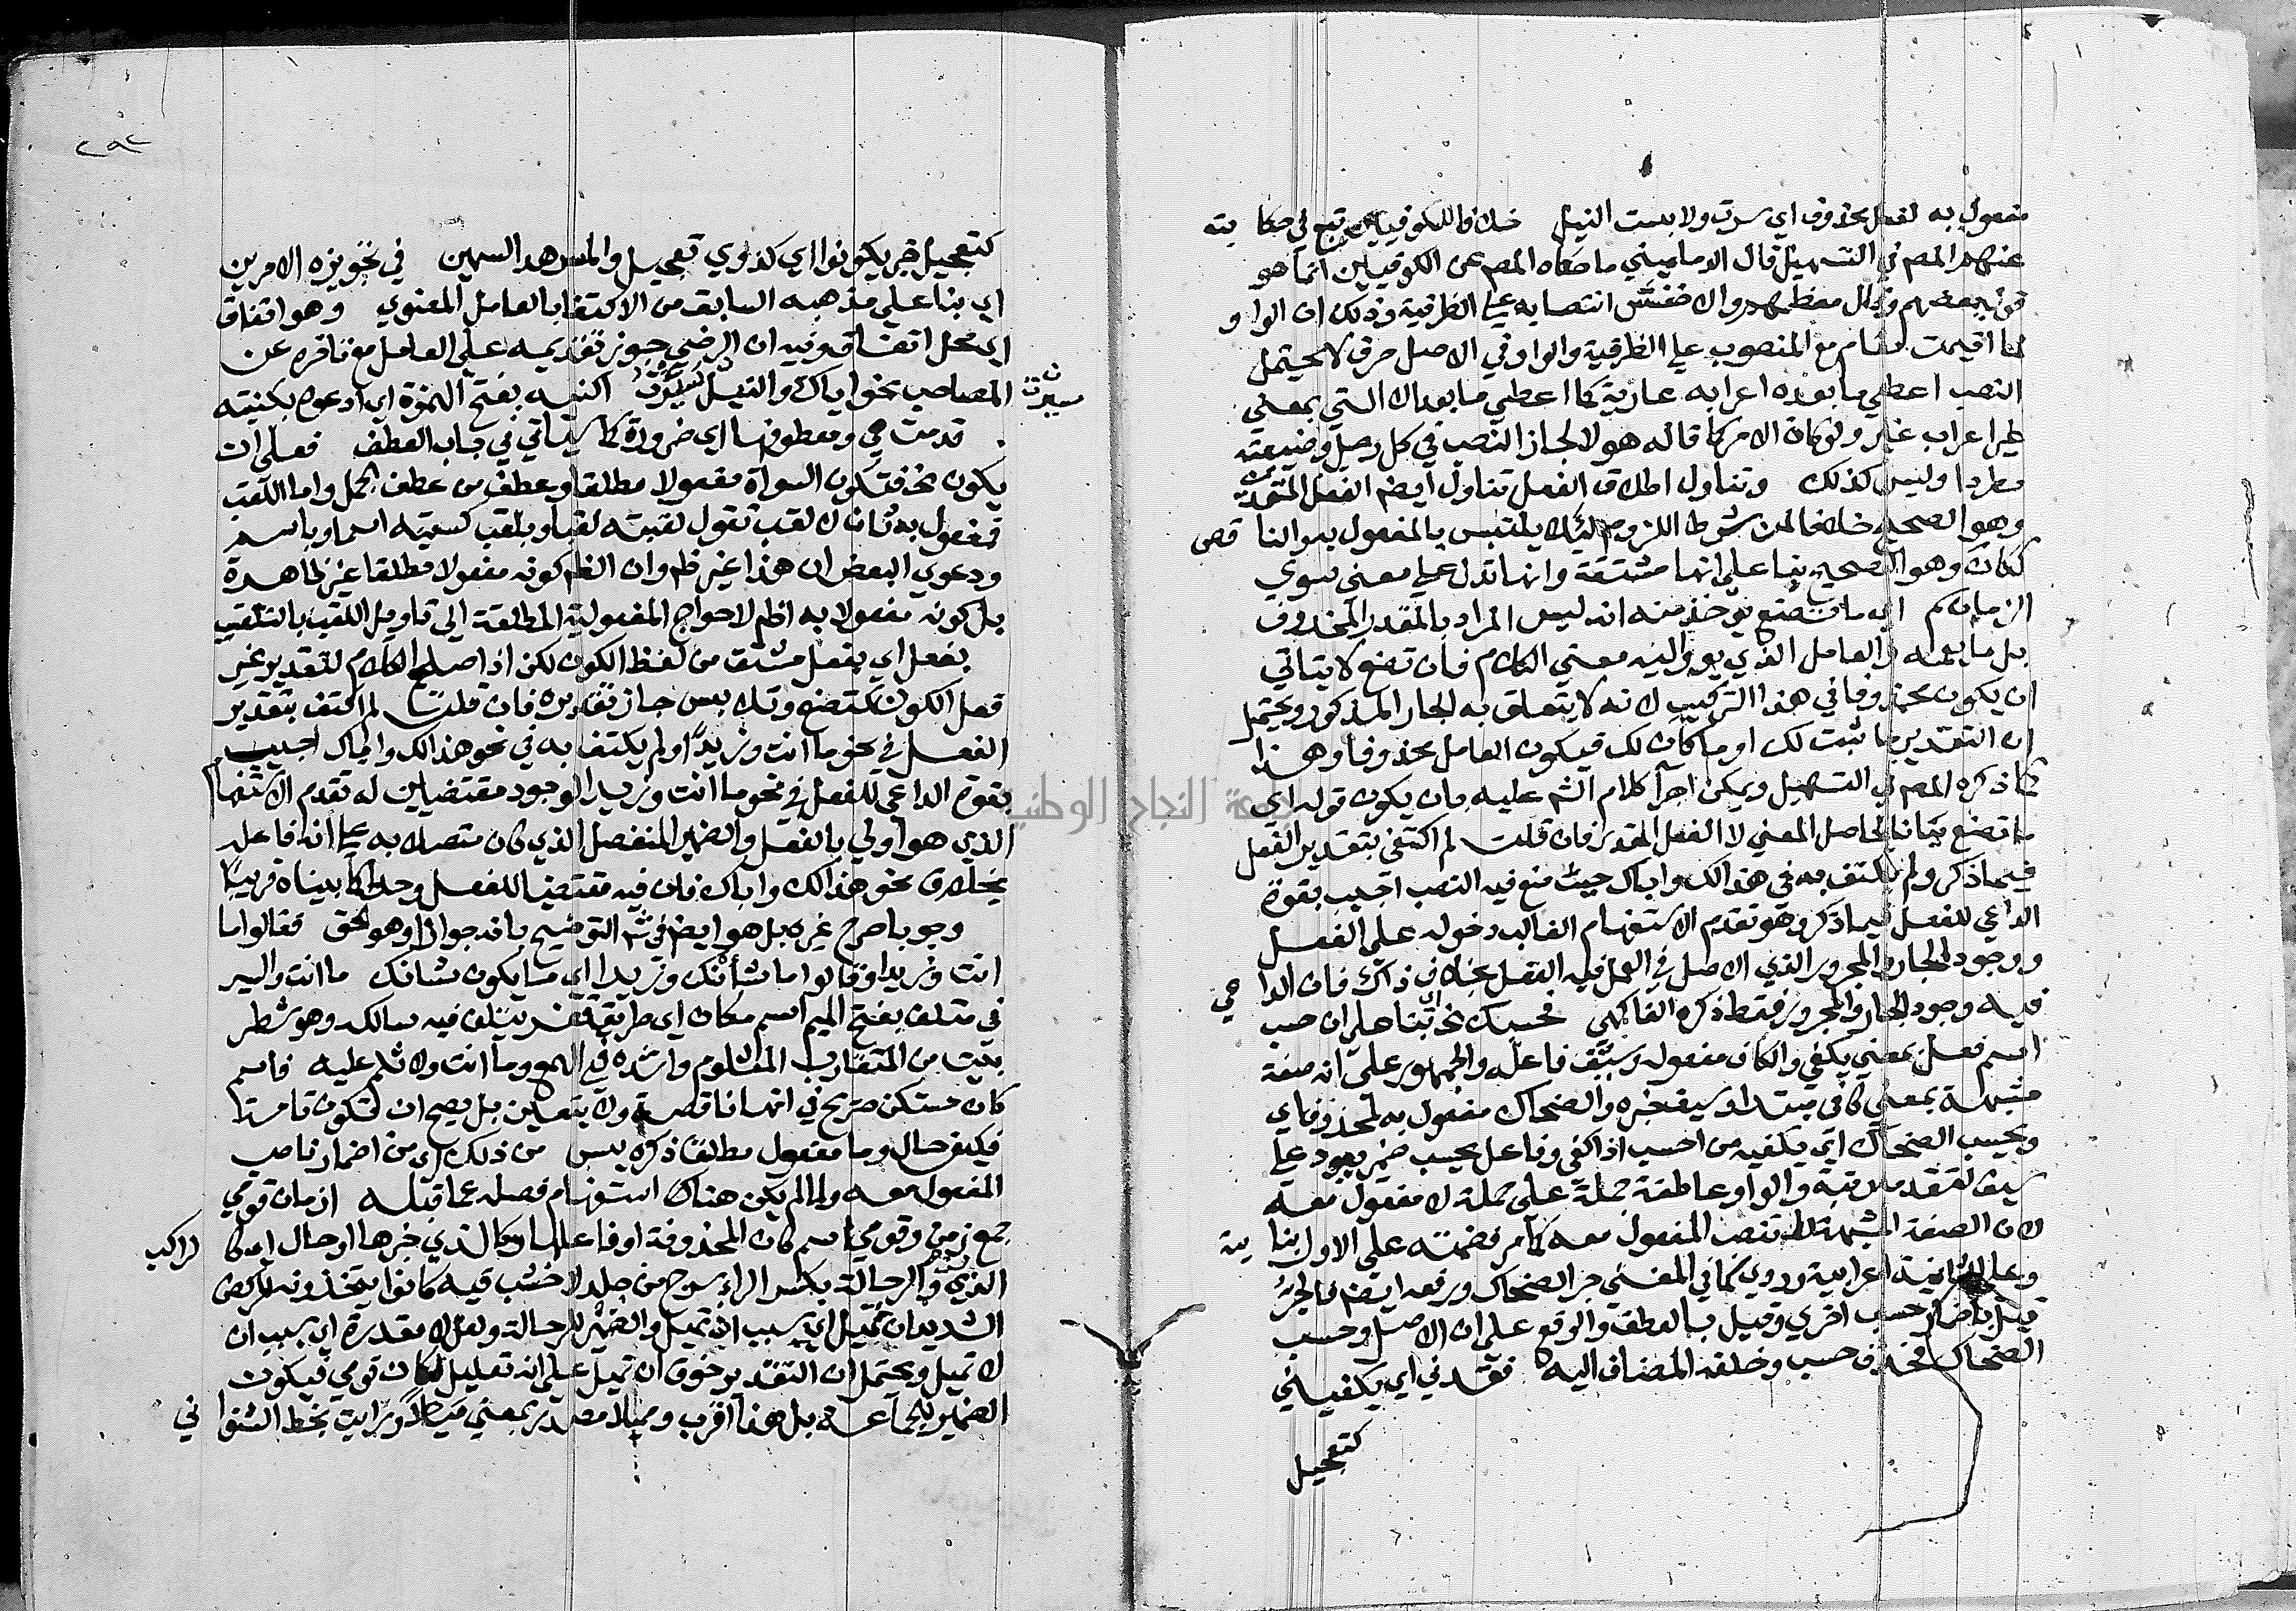 مفعول به لفعل محذوف اي سرت ولابست النيل خلافا للكوفيين تبع في حكايته
عنهم المص في التسهيل قال الدماميني ما حكاه المص عن الكوفيين انما هو
قول بعضهم وقال معظمهم والاخفش انتصابه على الظرفية وذلك ان الواو
لما اقيمت مقام مع المنصوب على الظرفية والواو في الاصل حرف لا يحتمل
النصب اعطي ما بعده اعرابه عارية كما اعطي ما بعد الا التي بمعني
غير اعراب غير ولو كان الامر كما قاله هولا لجاز النصب في كل رجل وضيعته
مطردا وليس كذلك وتناول اطلاق الفعل تناول ايضا الفعل المتعدي
وهو الصحيح خلافا لمن شرط اللزوم ليلا يلتبس بالمفعول به والناقص
ككان وهو الصحيح بنا على انها مشتقة وانها تدل على معني سوي
الزمان اي ما تصنع يوخذ منه انه ليس المراد بالمقدر المحذوف
بل ما يعمه والعامل الذي يوول اليه معني الكلام فان تصنع لا يتاتي
ان يكون محذوفا في هذا التركيب لانه لا يتعلق به الجار المذكور ويحتمل
ان التقدير ما ثبت لك او ما كان لك فيكون العامل محذوفا وهذا
كما ذكره المص في التسهيل ويمكن اجرا كلام الش عليه بان يكون قوله اي
ما تصنع بيانا لحاصل المعني لا الفعل المقدر فان قلت لم اكتفي بتقدير الفعل
فيما ذكر ولم يكتف به في هذا لك واباك حيث منع فيه النصب اجيب بقوة
الداعي للفعل فيما ذكر وهو تقدم الاستفهام الغالب دخوله على الفعل
ووجود الجار والمجرور الذي الاصل في العمل فيه الفعل بخلاف ذاك فان الداعي
فيه وجود الجار والمجرور فقط ذكره الفاكهي فحسبك الخ بنا على ان حسب
اسم فعل بمعني يكفي والكاف مفعوله وسيف فاعله والجمهور على انه صفة
مشبهة بمعني كافي مبتدا وسيف خبره والضحاك مفعول به لمحذوف اي
ويحسب الضحاك اي يكفيه من احسب اذا كفي وفاعل يحسب ضمير يعود على
سيف لتقدمه رتبة والواو عاطفة جملة على جملة لا مفعول معه
لان الصفة المشبهة لا تنصب المفعول معه كما مر فضمته على الاول بنايية
وعلى الثاني اعرابية وروي كما في المغني جر الضحاك ورفعه ايضا فالجر
قيل باضمار حسب اخري وقيل بالعطف والرفع على ان الاصل وحسب
الضحاك فحذف حسب وخلفه المضاف اليه فقدني اي يكفيني
كتعجيل
٢٩٢
كتعجيل خبر يكونوا اي كذوي تعجيل والمسرهد السمين في تجويزه الامرين
اي بنا على مذهبه السابق من الاكتفا بالعامل المعنوي وهو اتفاق
اي محل اتفاق وفيه ان الرضي جوز تقديمه على العامل مع تاخره عن
المصاحب نحو اياك والنيل سرت اكنيه بفتح الهمزة اي ادعوه بكنيته
سرت
قدمت هي ومعطوفها اي ضرورة كما سياتي في باب العطف فعلى ان
يكون الخ فتكون السواة مفعولا مطلقا وعطف من عطف الجمل واما اللقب
فمفعول به ثان لالقب تقول لقبته لقبا وبلقب كسميته اسما وباسم
ودعوي البعض ان هذا غير ظم وان الظم كونه مفعولا مطلقا غير ظاهرة
بل كونه مفعولا به اظم لاحواج المفعولية المطلقة الى تاويل اللقب بالتلقيب
بفعل اي بفعل مشتق من لفظ الكون لكن اذا صلح الكلام لتقدير غير
فعل الكون كتصنع وتلابس جاز تقديره فان قلت لم اكتف بتقدير
الفعل في نحو ما انت وزيدا ولم يكتف به في نحو هذا لك واباك اجيب
بقوة الداعي للفعل في نحو ما انت وزيدا لوجود مقتضيين له تقدم الاستفهام
الذي هو اولي بالفعل والضمير المنفصل الذي كان متصلا به على انه فاعله
بخلاف نحو هذا لك واباك فان فيه مقتضيا للفعل وحدا كما بيناه قريبا
وجوبا صرح غيره بل هو ايضا في ش التوضيح بانه جوازا وهو الحق فقالوا ما
انت وزيدا وقالوا ما شانك وزيدا اي ما يكون شانك ما انت والسير
في متلف بفتح الميم اسم مكان اي طريق قفر يتلف فيه سالكه وهو شطر
بيت من المتقارب المثلوم وانشده في الهمع وما انت ولا ثلم عليه فاسم
كان مستكن صريح في انها ناقصة ولا يتعين بل يصح ان تكون تامة
فكيف حال وما مفعول مطلق ذكره يس من ذلك اي من اضمار ناصب
المفعول معه ولما لم يكن هناك استفهام فصله عما قبله ازمان قومي
جمع زمن وقومي اسم كان المحذوفة او فاعلها وكالذي خبرها او حال اي كالراكب
الذي والرحالة بكسر الراء سرج من جلد لا خشب فيه كانوا يتخذونه للركض
الشديد ان تميل اي بسبب ان تميل والضمير للرحالة ولعل لا مقدرة اي بسبب ان
لا تميل ويحتمل ان التقدير خوف ان تميل على انه تعليل لكان قومي فيكون
الضمير للجماعة بل هذا اقرب ومميلا مصدر بمعني ميلا ورايت بخط الشنواني